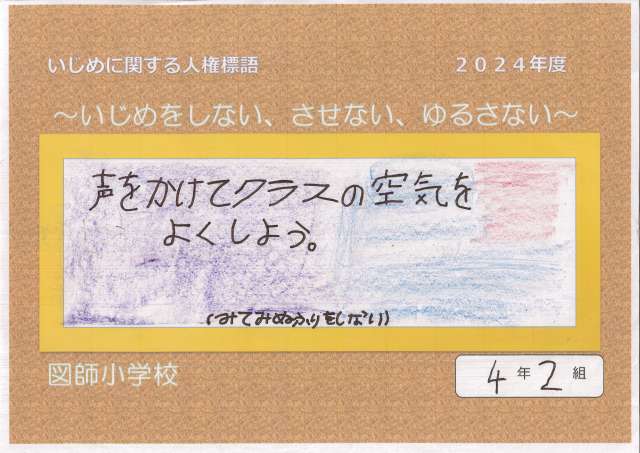 いじめに関する人権標語
２０２４年度
～いじめをしない、させない、ゆるさない～
声をかけてクラスの空気を
よくしよう。
(みてみぬふりをしない)
図師小学校
4年2組